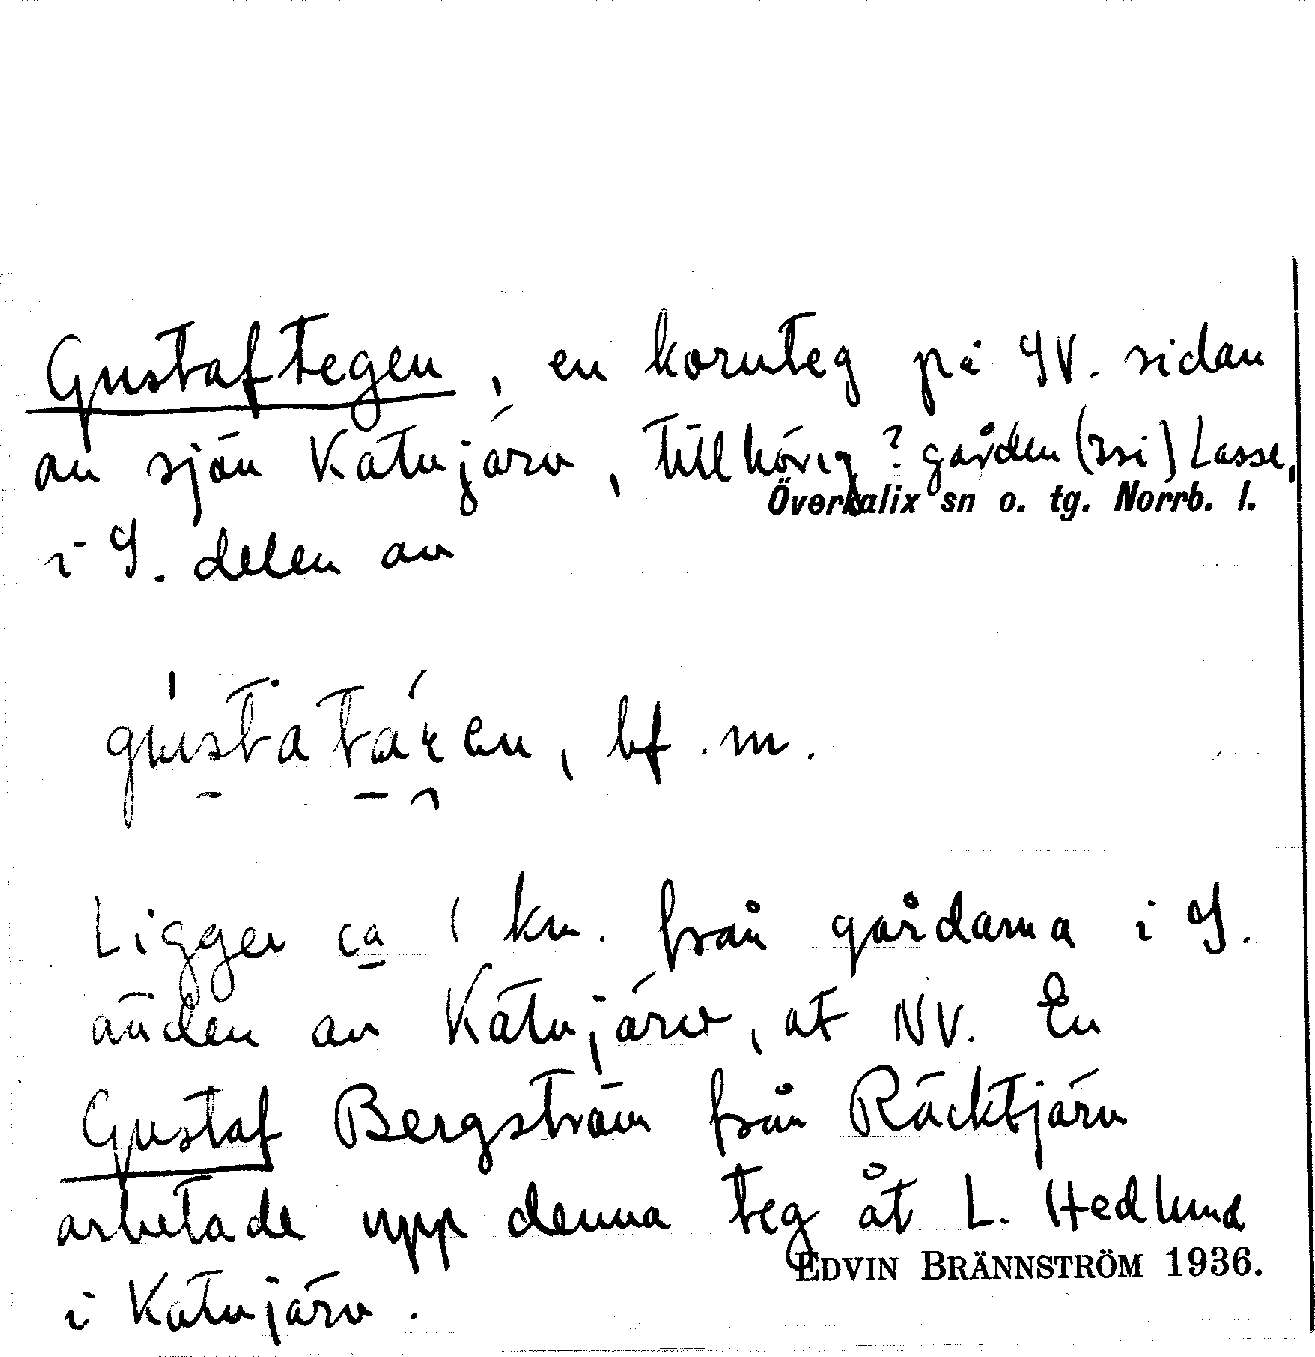 Gustaftegen, en kornteg på SV. sidan
av sjön Katujärv, tillhörig ? gården (si) Lasse,
Överkalix sn o. tg. Norrb. l.
i S. delen av
gustataren, bf. m.
Ligger ca 1 km. från gårdarna i S.
änden av Katujärv, åt NV. En
Gustaf Bergström från Räcktjärv
arbetade upp denna teg åt L. Hedlund
EDVIN BRÄNNSTRÖM 1936.
i Katujärv.